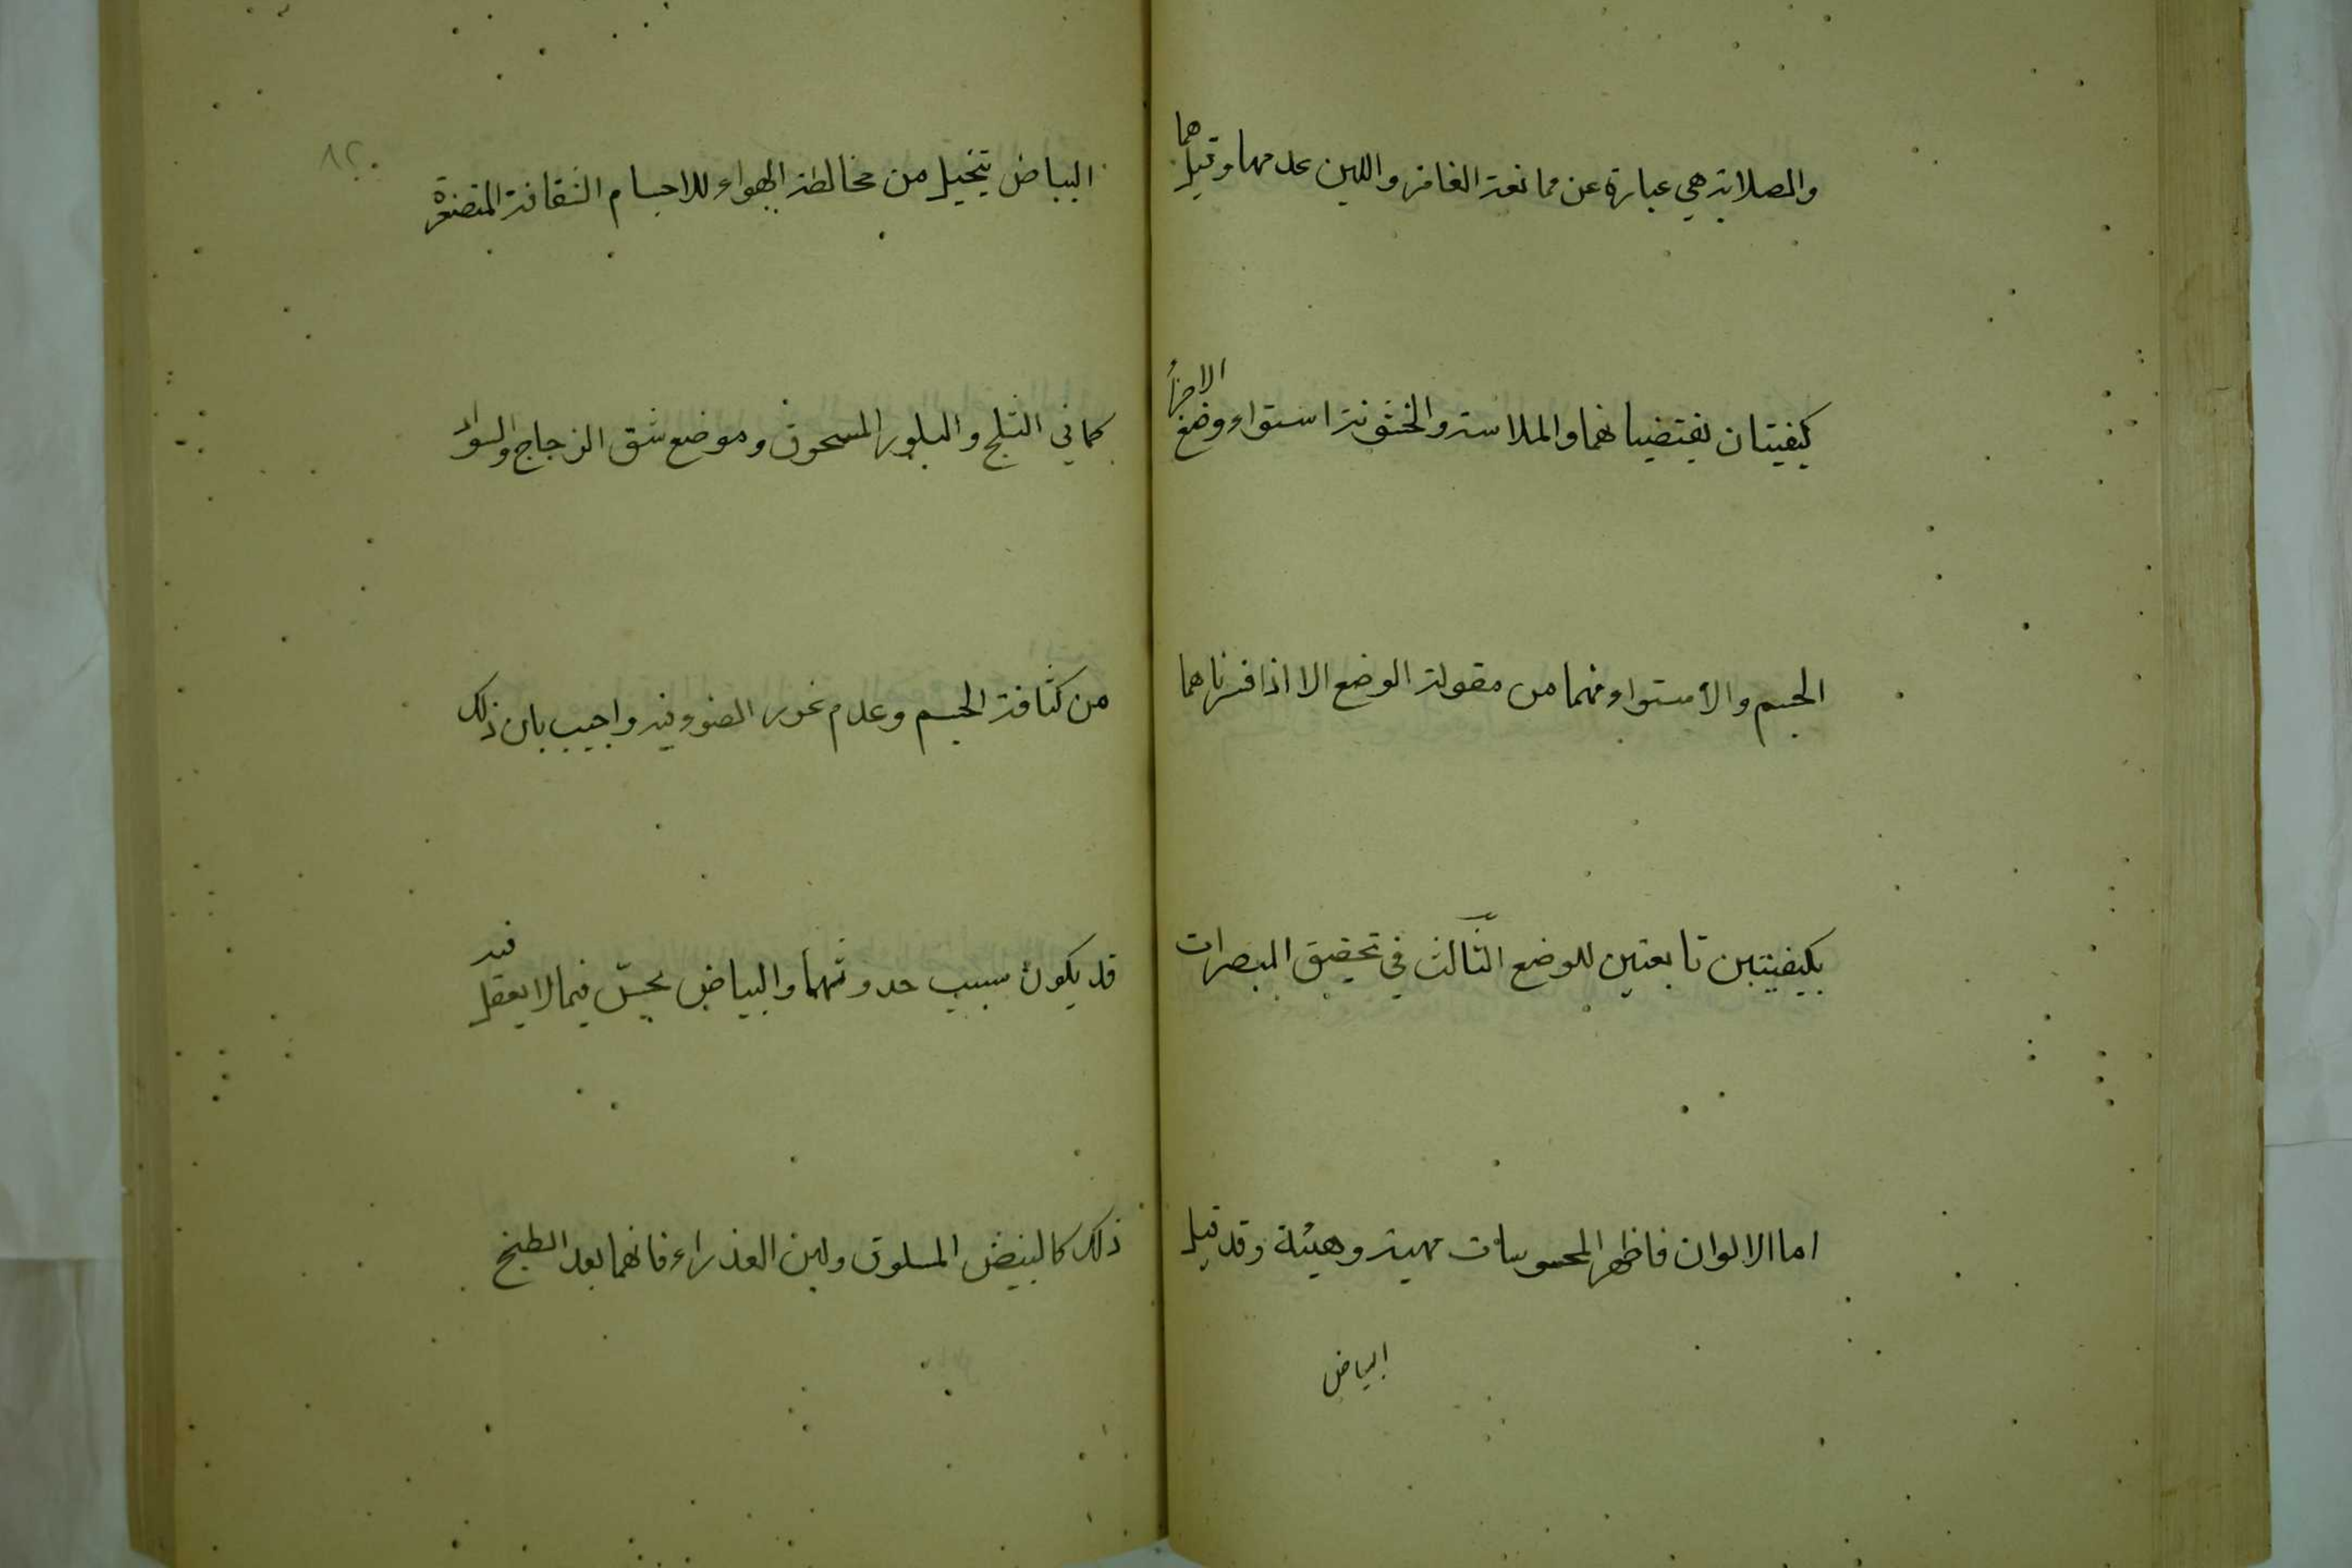 والصلابة هي عبارة عن ممانعة الغامز واللين عدمها وقيل هما
كيفيتان يقتضيانهما والملاسة والخشونة استواء وضع الاجزأ
الجسم والاستواء منهما من مقولة الوضع الا اذا فسرناهما
بكيفيتين تابعتين للوضع الثالث في تحقيق المبصرات
اما الالوان فاظهر المحسوسات مهية وهيئة وقد قيل
البياض
٨٢٠
البياض يتخيل من مخالطة الهواء للاجسام الشفافة المتصغرة
كما في الثلج والبلور المسحوق وموضع شق الزجاج والسواد
من كثافة الجسم وعدم غور الضوء فيه واجيب بان ذلك
قد يكون سبب حدوثهما والبياض يحس فيما لا يعقل فيه
ذلك كالبيض المسلوق ولبن العذراء فانهما بعد الطبخ